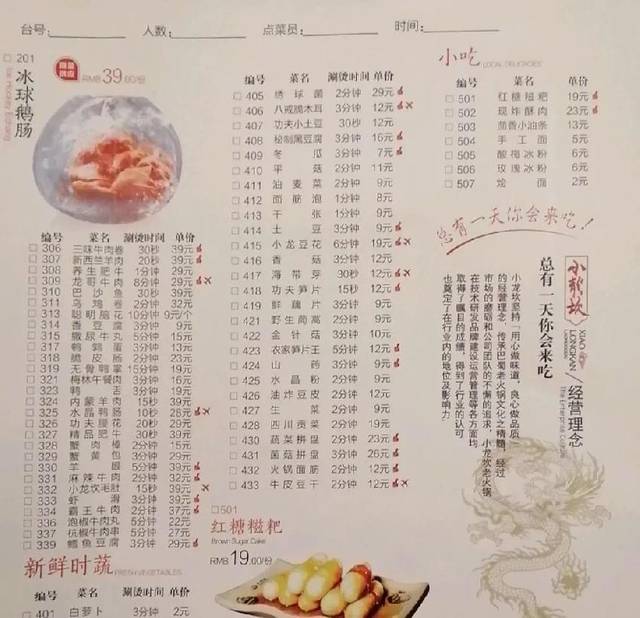 台号: 人数: 点菜员: 时间:
201
冰球鹅肠
RMB39.00/份
编号 菜名 涮烫时间 单价
306 三味牛肉卷 30秒 39元
307 新西兰羊肉 20秒 39元
308 养生肥牛 1分钟 29元
309 龙哥牛肉 8分钟 29元
310 巴沙鱼 30秒 39元
311 乌鸡卷 2分钟 32元
313 聪明脑花 10分钟 9元/个
314 香豆腐 3分钟 9元
315 撒尿牛丸 5分钟 29元
317 鹌鹑蛋 3分钟 13元
318 脆皮肠 2分钟 23元
319 无骨鸭掌 15分钟 19元
321 梅林午餐肉 3分钟 16元
323 鸭舌 3分钟 19元
324 内蒙羊肉 15秒 39元
325 水晶鸭肠 10秒 28元
326 功夫腰花 20秒 29元
327 精品肥牛 30秒 39元
328 蟹肉棒 2分钟 15元
329 蟹黄包 3分钟 29元
330 羊眼 5分钟 39元
331 麻辣牛肉 2分钟 32元
332 小龙坎毛肚 15秒 39元
333 虾滑 3分钟 39元
334 霸王牛肉 2分钟 37元
336 泡椒牛肉丸 5分钟 22元
337 杭椒牛肉串 5分钟 27元
339 鳕鱼豆腐 3分钟 29元
新鲜时蔬 FRESH VEGETABLES
编号 菜名 涮烫时间 单价
401 白萝卜 3分钟 2元
编号 菜名 涮烫时间 单价
405 绣球菌 2分钟 29元
406 八戒脆木耳 3分钟 12元
407 功夫小土豆 30秒 12元
408 秘制黑豆腐 3分钟 15元
409 冬瓜 3分钟 7元
410 平菇 2分钟 11元
411 油麦菜 2分钟 9元
412 面筋泡 1分钟 8元
413 干张 1分钟 9元
414 土豆 3分钟 9元
415 小龙豆花 6分钟 19元
416 香菇 3分钟 12元
417 海带芽 30秒 12元
418 功夫笋片 15秒 12元
419 鲜藕片 3分钟 9元
421 野生茼蒿 2分钟 9元
422 金针菇 3分钟 10元
423 农家笋片王 5分钟 12元
424 山药 3分钟 9元
425 水晶粉 2分钟 9元
426 油炸豆皮 2分钟 12元
427 生菜 2分钟 9元
428 四川贡菜 2分钟 19元
430 蔬菜拼盘 2分钟 23元
431 菌菇拼盘 3分钟 26元
432 火锅面筋 2分钟 12元
433 牛皮豆干 2分钟 12元
501
红糖糍粑
Brown Sugar Cake
RMB19.00/份
小吃 LOCAL DELICACIES
编号 菜名 单价
501 红糖糍粑 19元
502 现炸酥肉 23元
503 茴香小油条 13元
504 手工面 5元
505 酸梅冰粉 6元
506 玫瑰冰粉 6元
507 烩面 2元
总有一天你会来吃!
小龙坎
XIAO
LONGKAN
/经营理念
总有一天你会来吃
小龙坎坚持「用心做味道，良心做品质」
的经营理念，传承巴蜀老火锅文化之精髓，经过
市场的磨砺和公司团队的不懈的追求，小龙坎老火锅
在技术研发品牌建设运营管理等各方面均
取得了瞩目的成绩，得到了行业的认可
也奠定了在行业内的地位及影响力